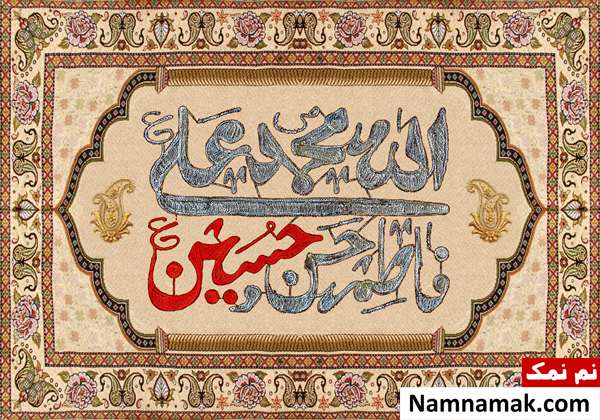 الله محمد علی
فاطمه حسن و حسین
نم نمک
Namnamak.com